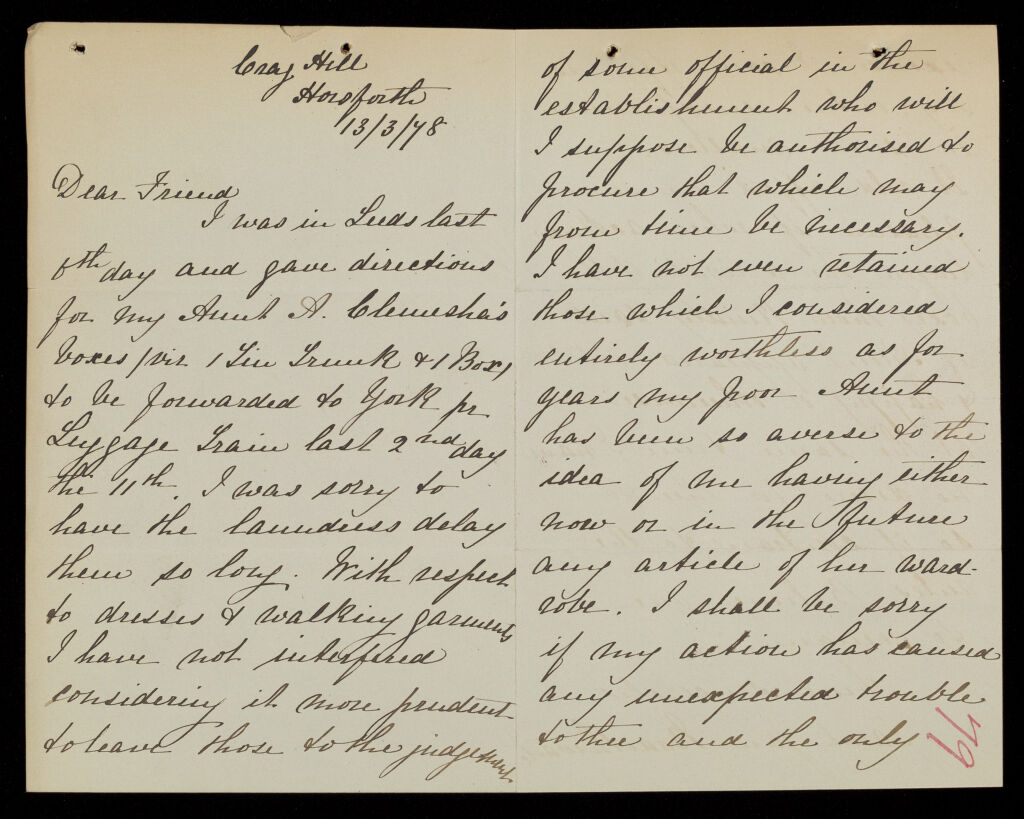 Crag Hill
Horsforth
13/3/78
Dear Friend
I was in Leeds last
6th day and gave directions
for my Aunt A. Clemesha's
boxes (viz 1 Tin Trunk & 1 Box)
to be forwarded to York pr
Luggage Train last 2nd day
the 11th. I was sorry to
have the laundress delay
them so long. With respect
to dresses & walking garments
I have not interfered
considering it more prudent
to leave those to the judgement
of some official in the
establishment who will
I suppose be authorised to
procure that which may
from time be necessary.
I have not even retained
those which I considered
entirely worthless as for
years my poor Aunt
has been so averse to the
idea of me having either
now or in the future
any article of her ward-
robe. I shall be sorry
if my action has caused
any unexpected trouble
to thee and the only